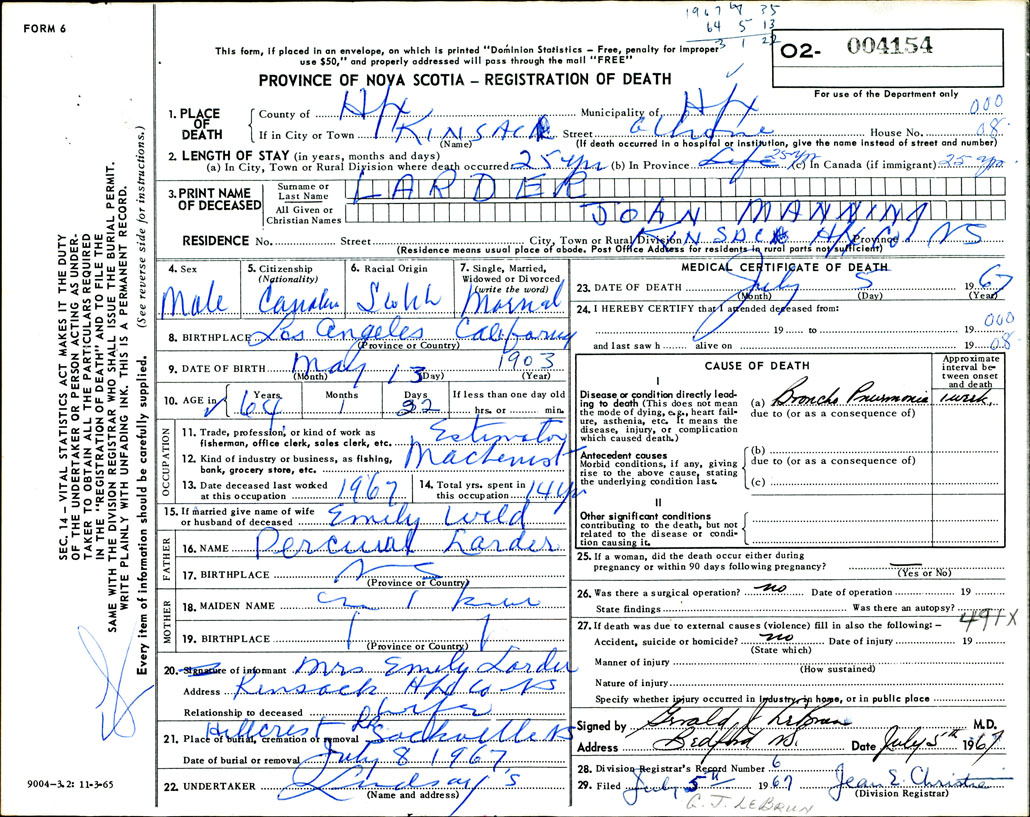 FORM 6
1967 7 35
64 5 13
3 1 22
This form, if placed in an envelope, on which is printed "Dominion Statistics – Free, penalty for improper
use $50," and properly addressed will pass through the mail "FREE"
O2- 004154
PROVINCE OF NOVA SCOTIA – REGISTRATION OF DEATH
For use of the Department only
1. PLACE OF DEATH
County of Hfx Municipality of Hfx 000
If in City or Town KINSACK Street House No. 08
(Name) (If death occurred in a hospital or institution, give the name instead of street and number)
2. LENGTH OF STAY (in years, months and days)
(a) In City, Town or Rural Division where death occurred 25 yrs (b) In Province Life 25 yrs (c) in Canada (if immigrant) 25 yrs.
3. PRINT NAME OF DECEASED
Surname or Last Name LARDER
All Given or Christian Names JOHN MANNING
RESIDENCE No. Street City, Town or Rural Division KINSACK Hfx Co Province NS
(Residence means usual place of abode. Post Office Address for residents in rural parts not sufficient)
4. Sex Male
5. Citizenship (Nationality) Canadian
6. Racial Origin Scotch
7. Single, Married, Widowed or Divorced (write the word) Married
8. BIRTHPLACE Los Angeles California
(Province or Country)
9. DATE OF BIRTH May 13 1903
(Month) (Day) (Year)
10. AGE in Years Months Days If less than one day old
64 1 22 hrs. or min.
OCCUPATION
11. Trade, profession, or kind of work as fisherman, office clerk, sales clerk, etc. Estimator
12. Kind of industry or business, as fishing, bank, grocery store, etc. Machinist
13. Date deceased last worked at this occupation 1967
14. Total yrs. spent in this occupation 14 yrs
15. If married give name of wife or husband of deceased Emily Wild
FATHER
16. NAME Percival Larder
17. BIRTHPLACE NS
(Province or Country)
MOTHER
18. MAIDEN NAME
19. BIRTHPLACE
(Province or Country)
20. Signature of informant Mrs Emily Larder
Address Kinsack Hfx Co NS
Relationship to deceased Wife
21. Place of burial, cremation or removal Hillcrest Sackville NS
Date of burial or removal July 8 1967
22. UNDERTAKER Lindsay's
(Name and address)
MEDICAL CERTIFICATE OF DEATH
23. DATE OF DEATH July 5 1967
(Month) (Day) (Year)
24. I HEREBY CERTIFY that I attended deceased from:
19 to 19 000
and last saw h alive on 19 08
CAUSE OF DEATH
Approximate interval between onset and death
I
Disease or condition directly leading to death (This does not mean the mode of dying, e.g., heart failure, asthenia, etc. It means the disease, injury, or complication which caused death.)
(a) Broncho Pneumonia 1 week
due to (or as a consequence of)
Antecedent causes
Morbid conditions, if any, giving rise to the above cause, stating the underlying condition last.
(b)
due to (or as a consequence of)
(c)
II
Other significant conditions
contributing to the death, but not related to the disease or condition causing it.
25. If a woman, did the death occur either during
pregnancy or within 90 days following pregnancy?
(Yes or No)
26. Was there a surgical operation? no Date of operation 19
State findings Was there an autopsy?
491X
27. If death was due to external causes (violence) fill in also the following: –
Accident, suicide or homicide? no Date of injury 19
(State which)
Manner of injury
(How sustained)
Nature of injury
Specify whether injury occurred in Industry, in home, or in public place
Signed by Gerald J LeBrun M.D.
Address Bedford NS. Date July 5th 1967
28. Division Registrar's Record Number 6
29. Filed July 5th 1967 Jean E. Christie
(Division Registrar)
G. J. LeBRUN
9004-3.2: 11-3-65
SEC. 14 – VITAL STATISTICS ACT MAKES IT THE DUTY
OF THE UNDERTAKER OR PERSON ACTING AS UNDERTAKER TO OBTAIN ALL THE PARTICULARS REQUIRED
IN THE "REGISTRATION OF DEATH" AND TO FILE THE
SAME WITH THE DIVISION REGISTRAR WHO SHALL ISSUE THE BURIAL PERMIT.
WRITE PLAINLY WITH UNFADING INK. THIS IS A PERMANENT RECORD.
Every item of information should be carefully supplied. (See reverse side for instructions.)